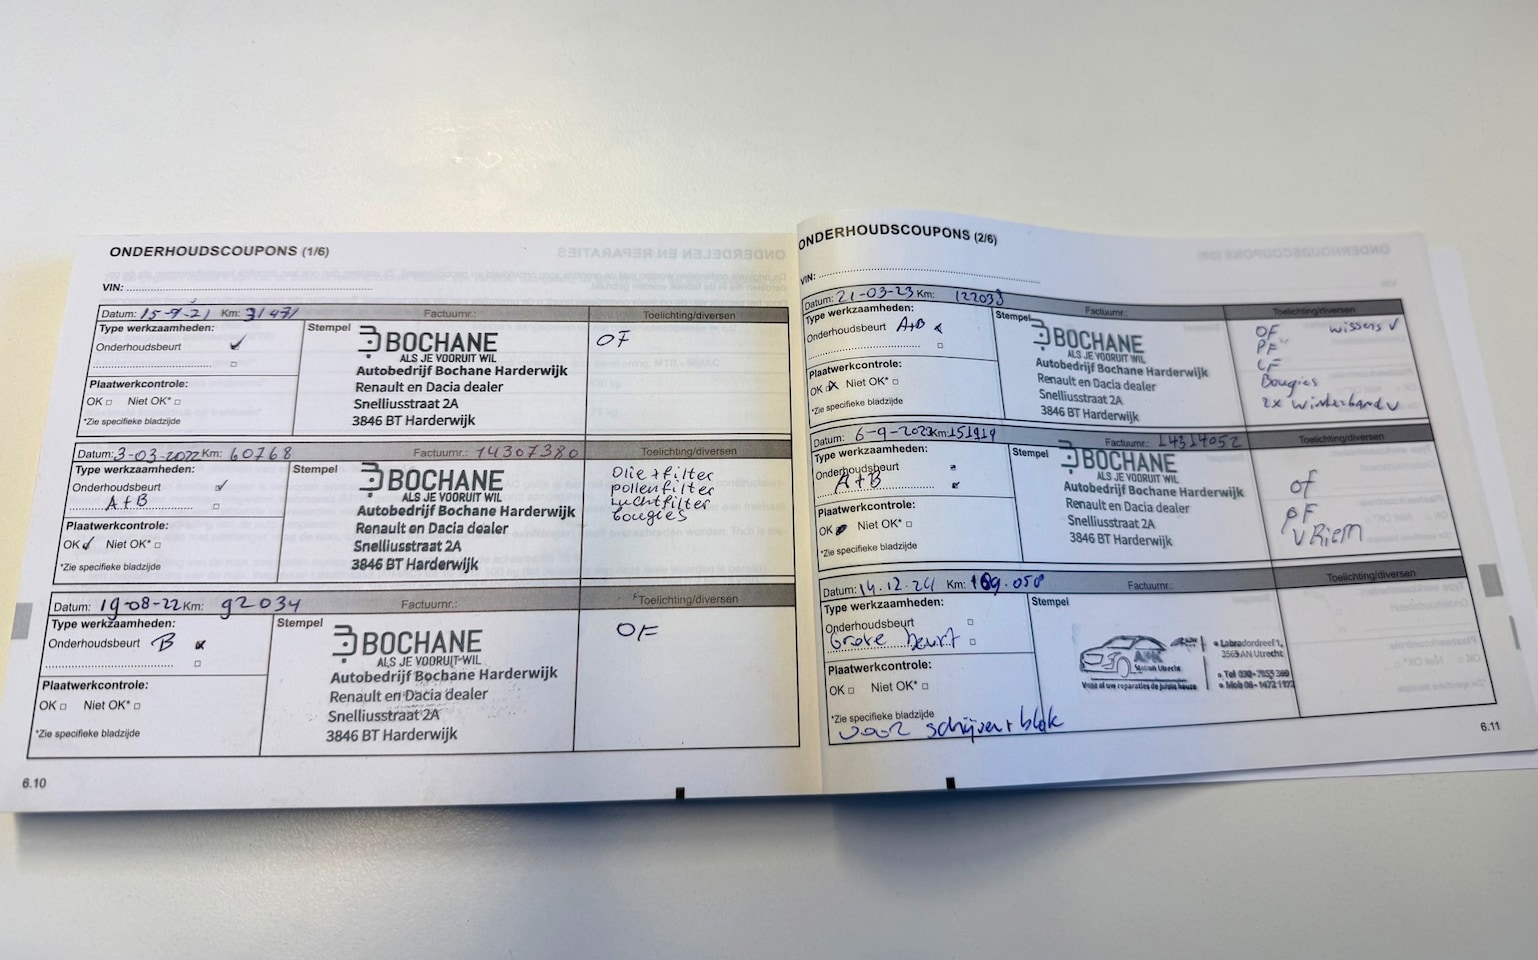 ONDERHOUDSCOUPONS (1/6)
VIN:
Datum: 15-9-21 Km: 31471 Factuurnr.: Toelichting/diversen
Type werkzaamheden:
Onderhoudsbeurt
Plaatwerkcontrole:
OK Niet OK*
*Zie specifieke bladzijde
Stempel
BOCHANE
ALS JE VOORUIT WIL
Autobedrijf Bochane Harderwijk
Renault en Dacia dealer
Snelliusstraat 2A
3846 BT Harderwijk
OF
Datum: 3-03-2022 Km: 60768 Factuurnr.: 14307380 Toelichting/diversen
Type werkzaamheden:
Onderhoudsbeurt
A+B
Plaatwerkcontrole:
OK Niet OK*
*Zie specifieke bladzijde
Stempel
BOCHANE
ALS JE VOORUIT WIL
Autobedrijf Bochane Harderwijk
Renault en Dacia dealer
Snelliusstraat 2A
3846 BT Harderwijk
Olie + filter
pollenfilter
luchtfilter
bougies
Datum: 19-08-22 Km: 92034 Factuurnr.: Toelichting/diversen
Type werkzaamheden:
Onderhoudsbeurt B
Plaatwerkcontrole:
OK Niet OK*
*Zie specifieke bladzijde
Stempel
BOCHANE
ALS JE VOORUIT WIL
Autobedrijf Bochane Harderwijk
Renault en Dacia dealer
Snelliusstraat 2A
3846 BT Harderwijk
OF
6.10
ONDERHOUDSCOUPONS (2/6)
VIN:
Datum: 21-03-23 Km: 122033 Factuurnr.: Toelichting/diversen
Type werkzaamheden:
Onderhoudsbeurt A+B
Plaatwerkcontrole:
OK Niet OK*
*Zie specifieke bladzijde
Stempel
BOCHANE
ALS JE VOORUIT WIL
Autobedrijf Bochane Harderwijk
Renault en Dacia dealer
Snelliusstraat 2A
3846 BT Harderwijk
OF wissers
PF
LF
Bougies
2x winterband
Datum: 6-9-2023 Km: 151919 Factuurnr.: 14314052 Toelichting/diversen
Type werkzaamheden:
Onderhoudsbeurt
A+B
Plaatwerkcontrole:
OK Niet OK*
*Zie specifieke bladzijde
Stempel
BOCHANE
ALS JE VOORUIT WIL
Autobedrijf Bochane Harderwijk
Renault en Dacia dealer
Snelliusstraat 2A
3846 BT Harderwijk
of
pF
V Riem
Datum: 14.12.24 Km: 169.058 Factuurnr.: Toelichting/diversen
Type werkzaamheden:
Onderhoudsbeurt
Grote beurt
Plaatwerkcontrole:
OK Niet OK*
*Zie specifieke bladzijde
voor schijven + blok
Stempel
APK
Station Utrecht
Voor al uw reparaties de juiste keuze
Labradordreef 1,
3565 AN Utrecht
6.11